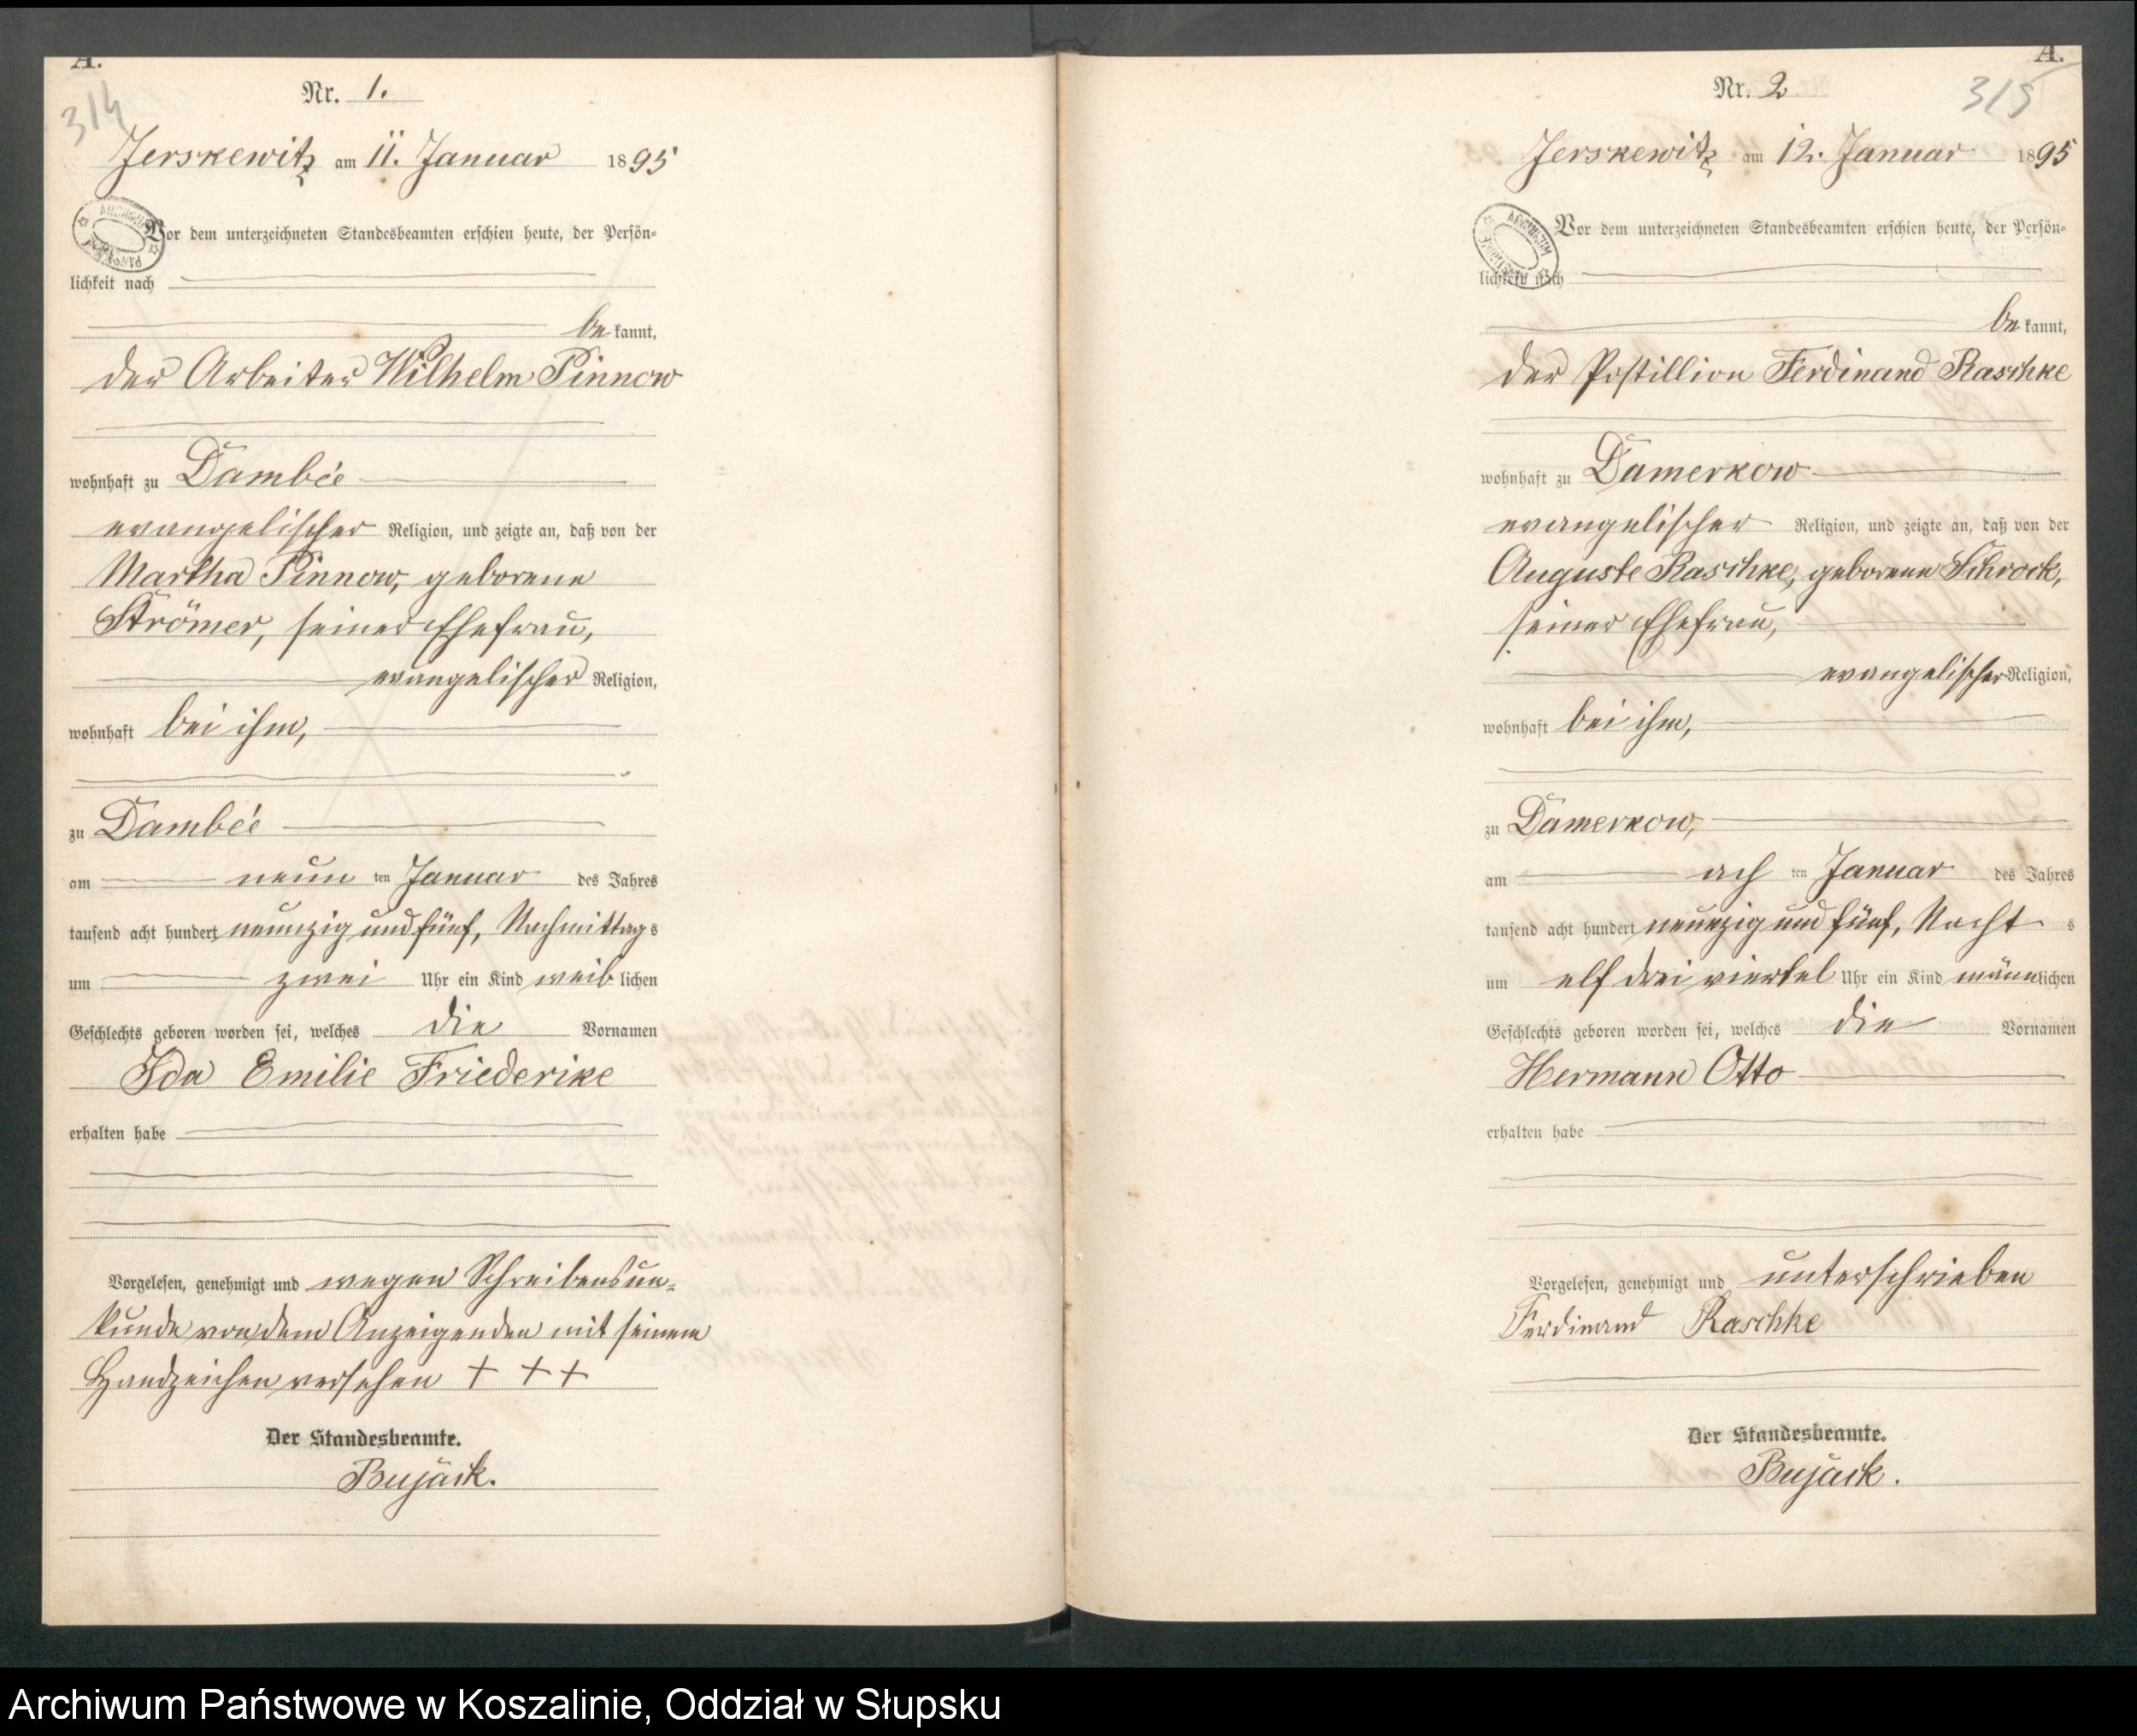 A.
314
Nr. 1.
Jerskewitz am 11. Januar 1895
Vor dem unterzeichneten Standesbeamten erschien heute, der Persön=
lichkeit nach
be kannt,
der Arbeiter Wilhelm Pinnow
wohnhaft zu Dambée
evangelischer Religion, und zeigte an, daß von der
Martha Pinnow, geborene
Strömer, seiner Ehefrau,
evangelischer Religion,
wohnhaft bei ihm,
zu Dambée
am neun ten Januar des Jahres
tausend acht hundert neunzig und fünf, Nachmittag s
um zwei Uhr ein Kind weib lichen
Geschlechts geboren worden sei, welches die Vornamen
Ida Emilie Friederike
erhalten habe
Vorgelesen, genehmigt und wegen Schreibensun=
kunde von dem Anzeigenden mit seinem
Handzeichen versehen + + +
Der Standesbeamte.
Bujack.
A.
315
Nr. 2
Jerskewitz am 12. Januar 1895
Vor dem unterzeichneten Standesbeamten erschien heute, der Persön=
lichkeit nach
be kannt,
der Postillion Ferdinand Raschke
wohnhaft zu Damerkow
evangelischer Religion, und zeigte an, daß von der
Auguste Raschke, geborene Schrock,
seiner Ehefrau,
evangelischer Religion,
wohnhaft bei ihm,
zu Damerkow,
am ach ten Januar des Jahres
tausend acht hundert neunzig und fünf, Nacht s
um elf drei viertel Uhr ein Kind männlichen
Geschlechts geboren worden sei, welches die Vornamen
Hermann Otto
erhalten habe
Vorgelesen, genehmigt und unterschrieben
Ferdinand Raschke
Der Standesbeamte.
Bujack.
Archiwum Państwowe w Koszalinie, Oddział w Słupsku